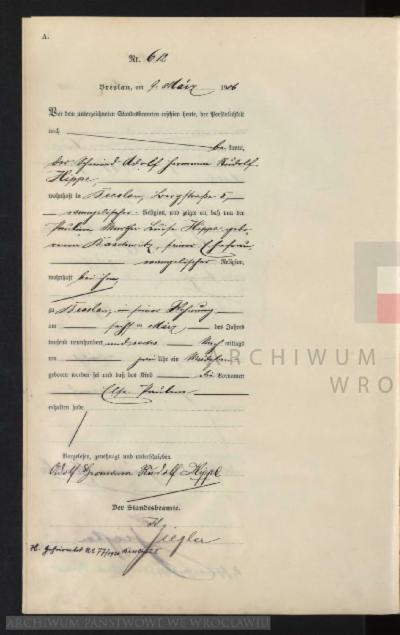 A.
Nr. 612
Breslau, am 9. März 1906
Vor dem unterzeichneten Standesbeamten erschien heute, der Persönlichkeit
nach
be kannt,
der Schmied Adolf Hermann Rudolf
Hippe,
wohnhaft in Breslau, Bergstraße 5,
evangelischer Religion, und zeigte an, daß von der
Pauline Martha Luise Hippe, gebo-
renen, seiner Ehefrau,
evangelischer Religion,
wohnhaft bei ihm,
zu Breslau, in seiner Wohnung
am sechsten März des Jahres
tausend neunhundert und sechs Nach mittags
um zwei Uhr ein Mädchen
geboren worden sei und daß das Kind die Vornamen
Else Pauline
erhalten habe.
Vorgelesen, genehmigt und unterschrieben
Adolf Hermann Rudolf Hippe
Der Standesbeamte.
Ziegler
ARCHIWUM
WRO
ARCHIWUM PAŃSTWOWE WE WROCŁAWIU